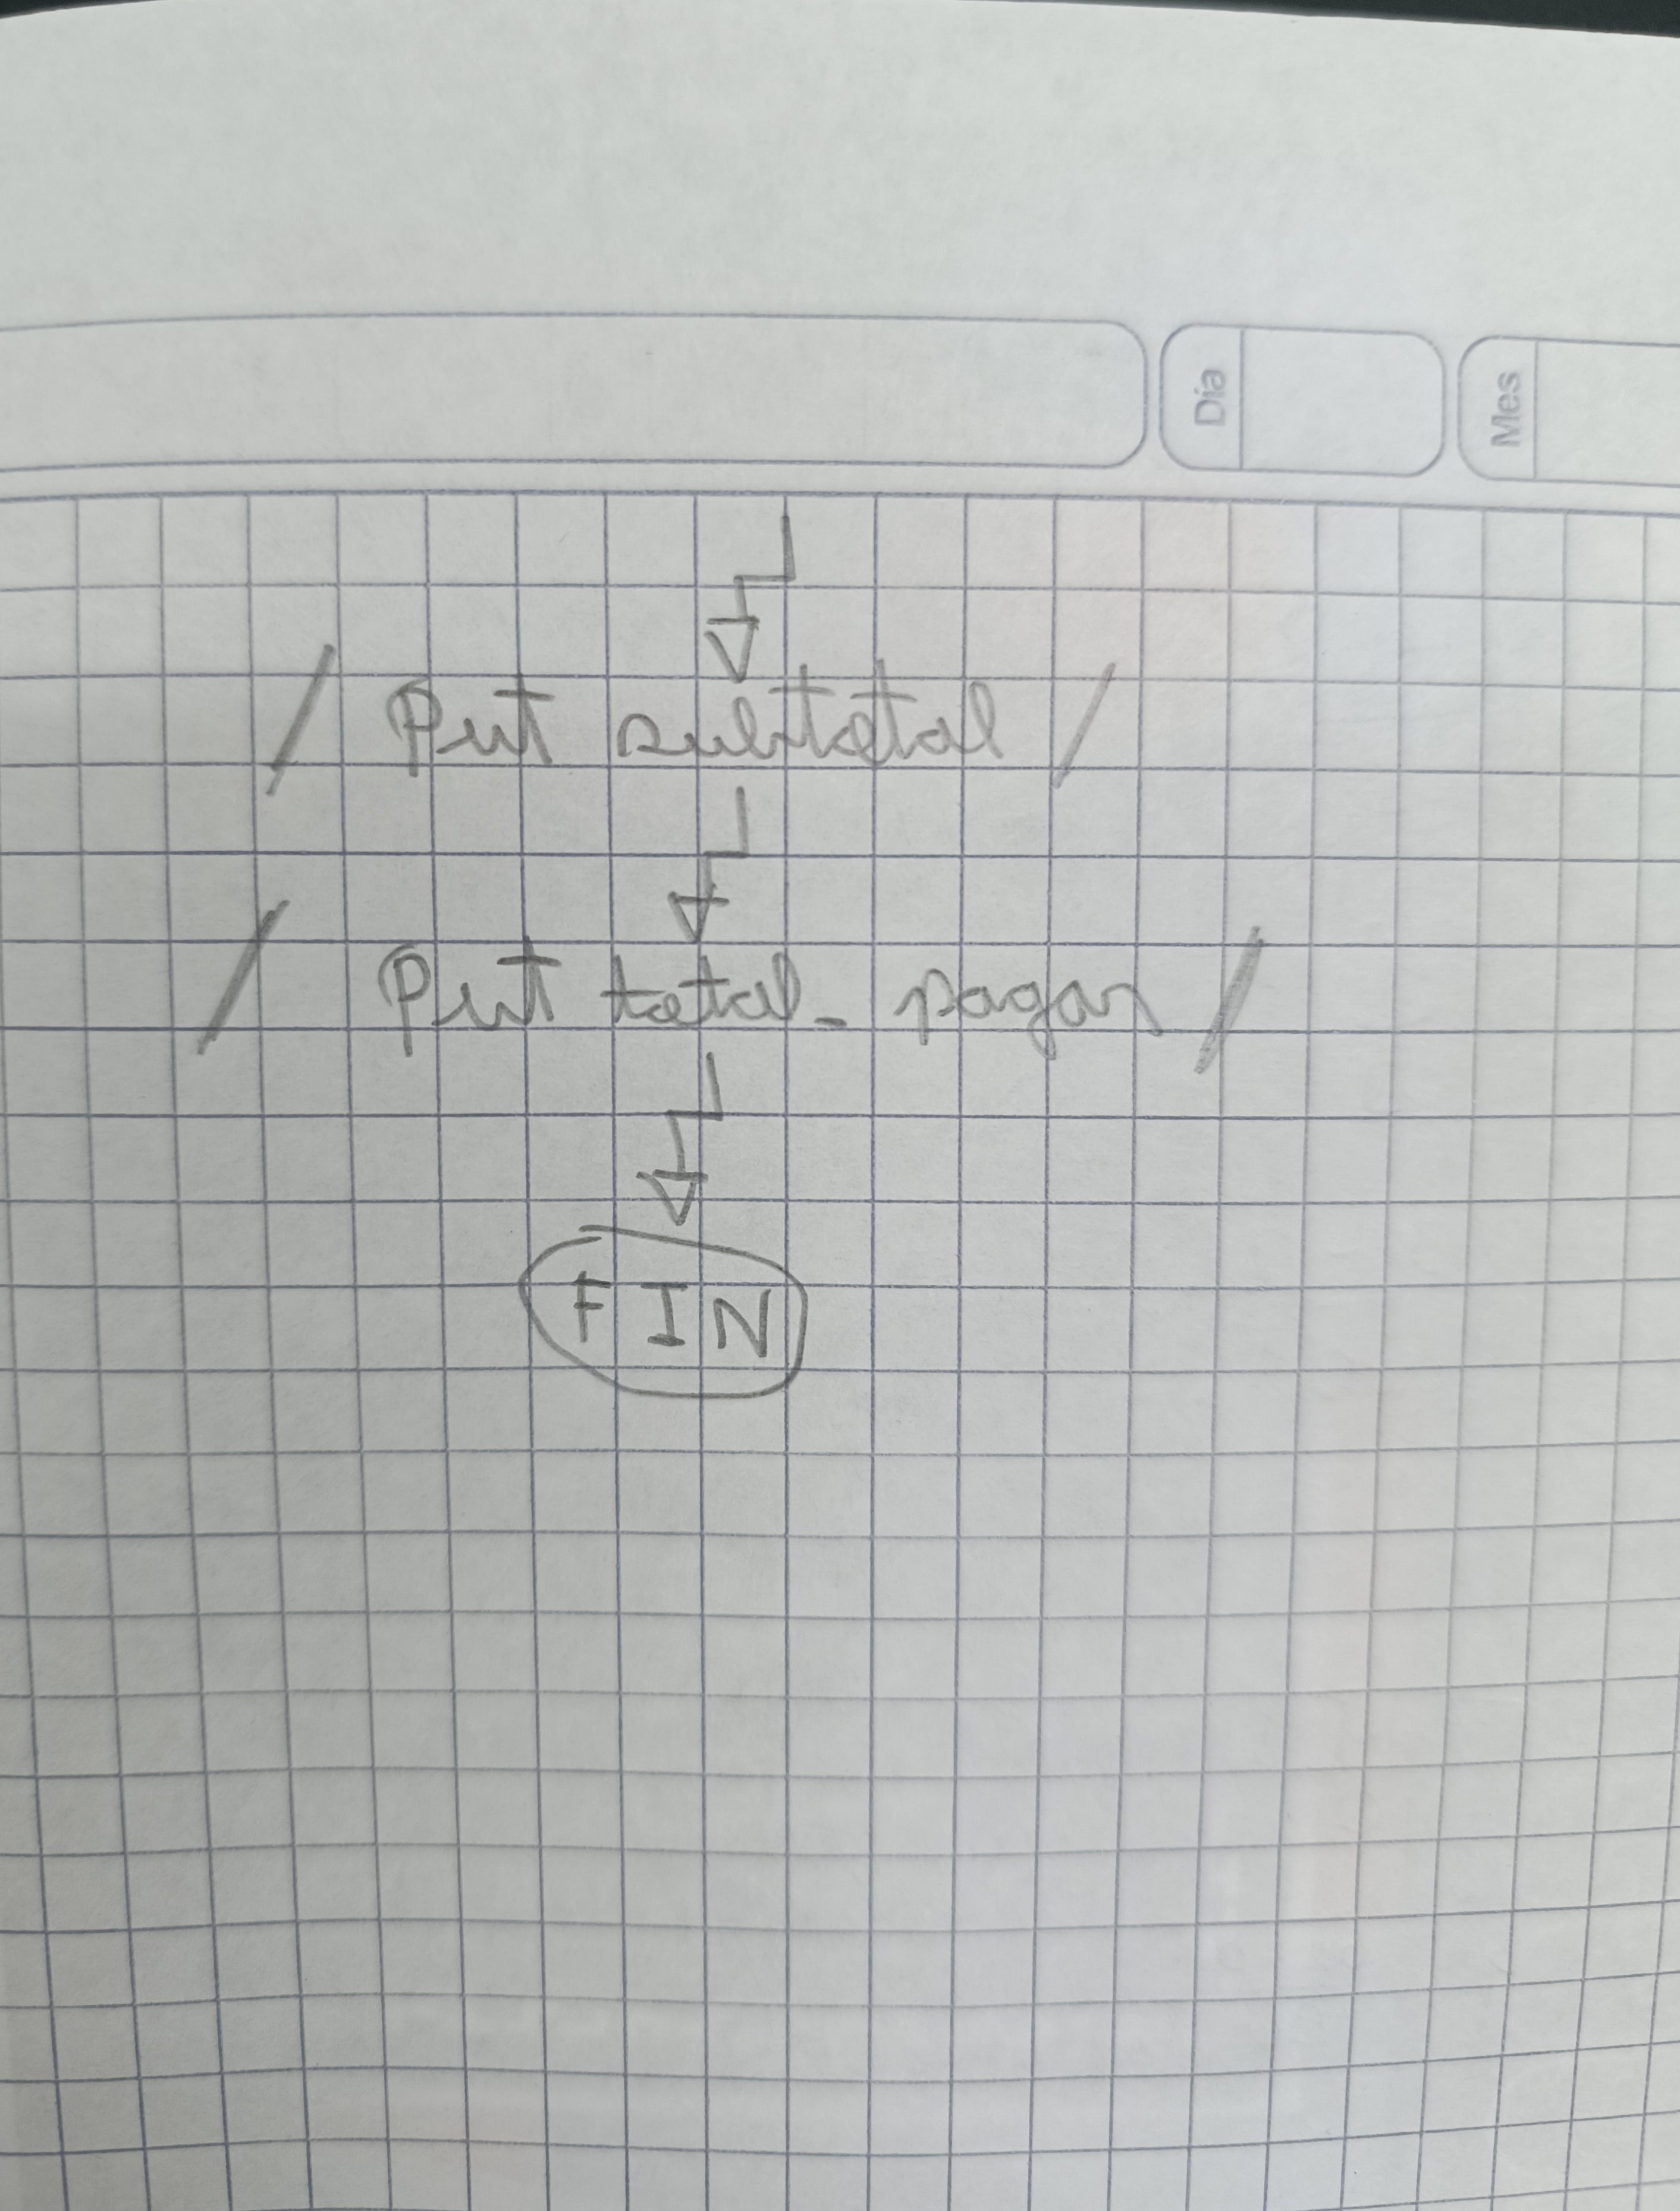 Día
Mes
/ Put subtotal /
/ Put total_pagar /
FIN